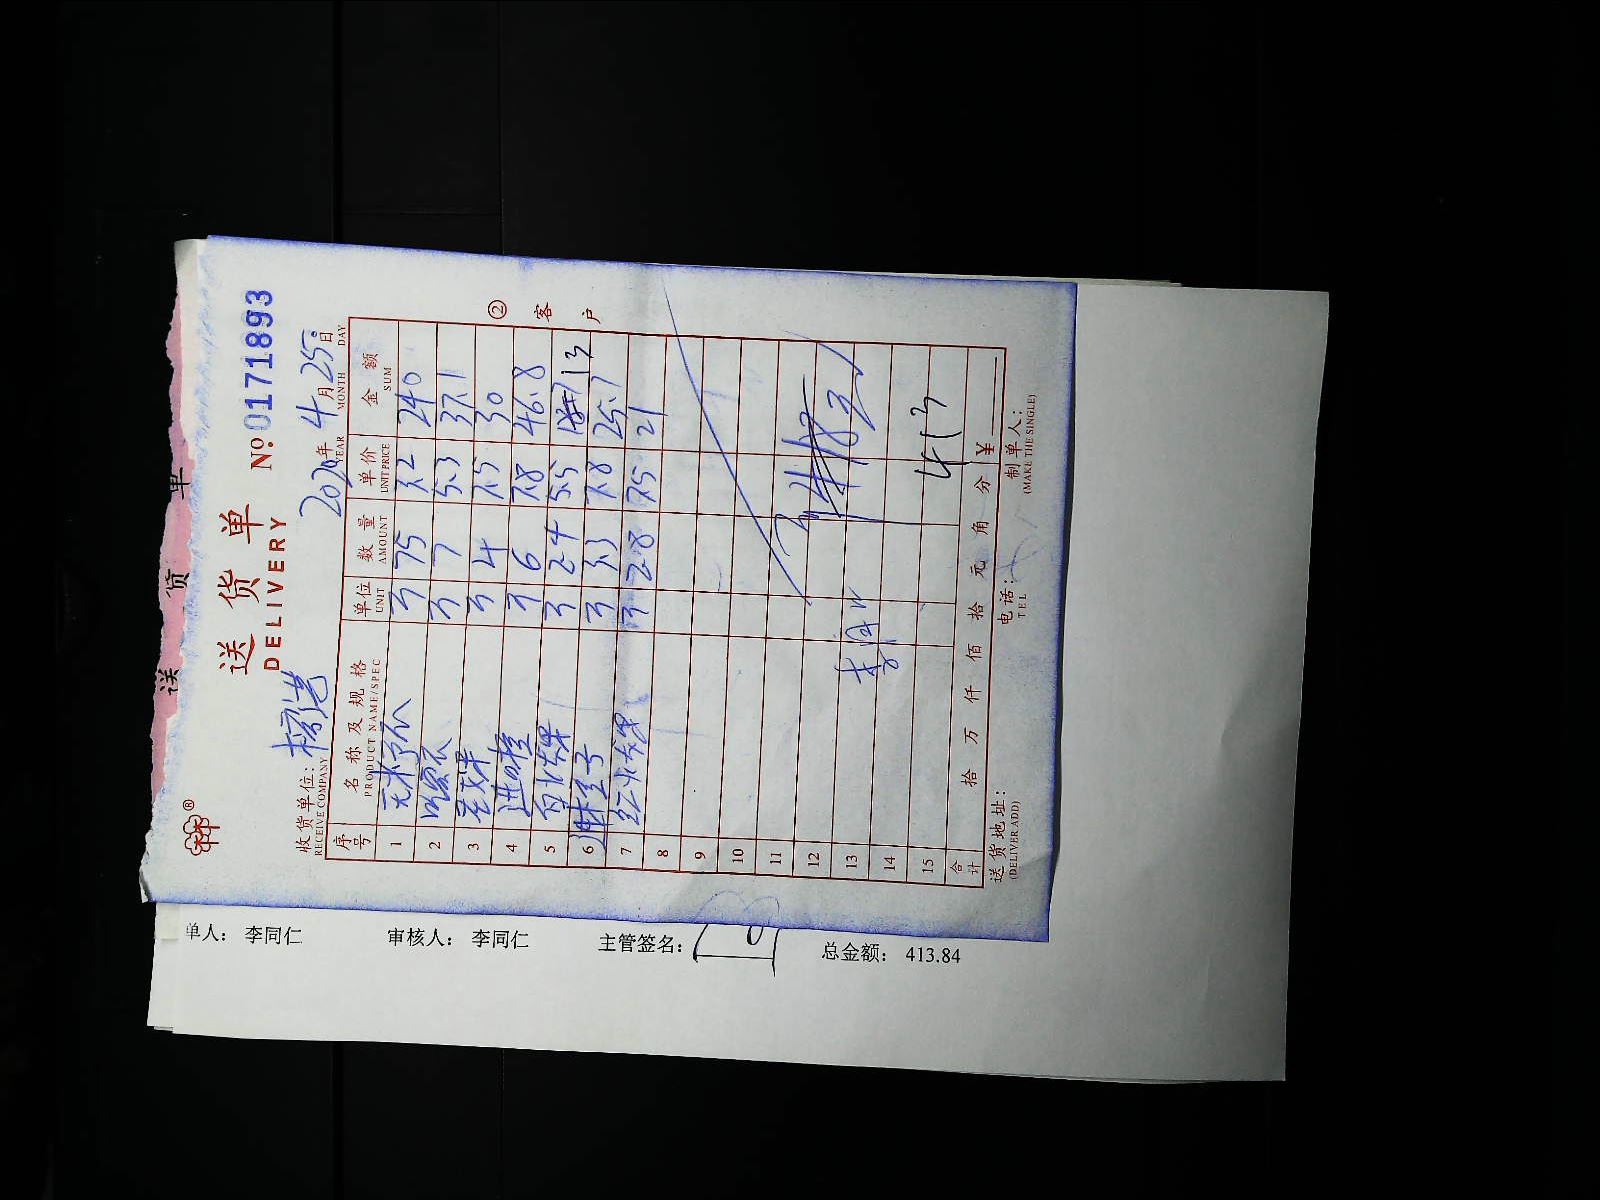 送 货 单
送货单
DELIVERY
№ 0171893
收货单位：
RECEIVE COMPANY
2020年 4月 25日
YEAR MONTH DAY
序号 名称及规格 单位 数量 单价 金额
PRODUCT NAME/SPEC UNIT AMOUNT UNIT PRICE SUM
1 斤 75 3.2 240
2 斤 7 5.3 37.1
3 斤 4 7.5 30
4 进口橙 斤 6 7.8 46.8
5 斤 2.4 5.5 13
6 斤 3.3 7.8 25.7
7 斤 2.8 7.5 21
8
9
10
11
12
13
14
15 413
合计 拾 万 仟 佰 拾 元 角 分 ￥
② 客户
送货地址： 电话： 制单人：
(DELIVER ADD) TEL (MAKE THE SINGLE)
单人： 李同仁 审核人： 李同仁 主管签名： 总金额： 413.84